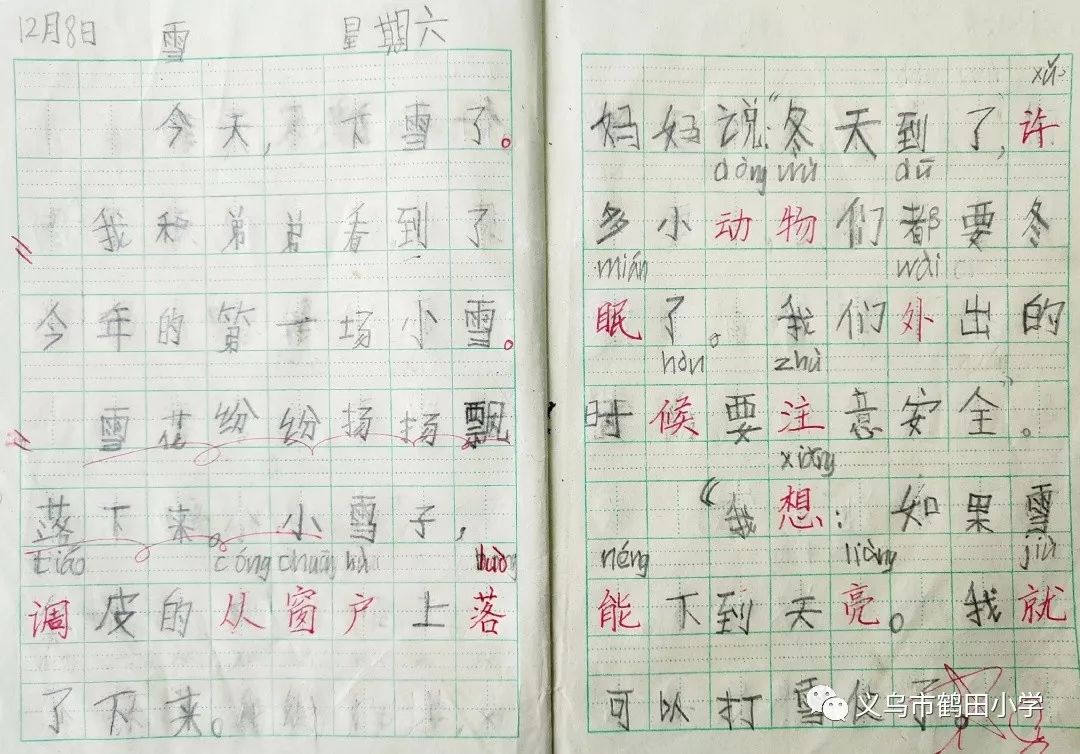 12月8日 雪 星期六
今天,下雪了。
我和弟弟看到了
今年的第一场小雪。
雪花纷纷扬扬飘
落下来。小雪子,
tiáo cóng chuāng hù
调皮的从窗户上落
了下来。
xǔ
妈妈说:“冬天到了,许
dòng wù dū
多小动物们都要冬
mián wài
眠了。我们外出的
hòu zhù
时候要注意安全。”
xiǎng
“我想:如果雪
néng liàng jiù
能下到天亮。我就
可以打雪仗了
义乌市鹤田小学